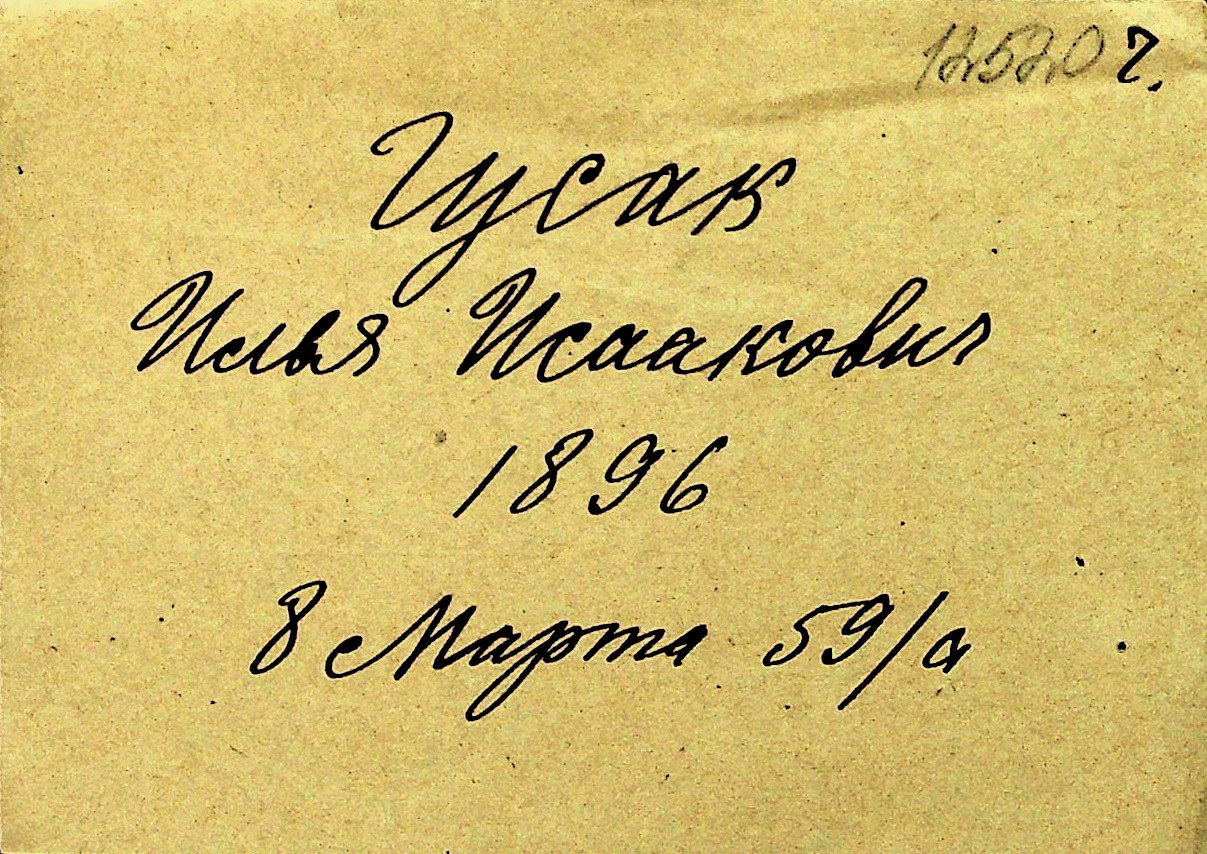 12520 г.
Гусак
Илья Исаакович
1896
8 Марта 59/а